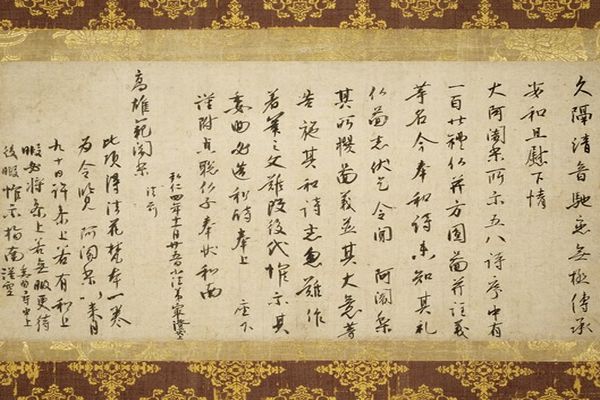 久隔清音馳恋無極傳承
安和且慰下情
大阿闍梨所示五八詩序中有
一百廿禮仏并方圓圖并註義
等名今奉和詩未知其礼
仏圖者伏乞令聞 阿闍梨
其所撰圖義並其大意等
告施其和詩者忽難作
著筆之文難改後代惟示其
委曲必造和詩奉上 座下
謹附貞聡仏子奉状和南
弘仁四年十一月廿五日小法弟最澄状上
高雄範闍梨
法前
此頃得法花梵本一巻
為令覧阿闍梨以来月
九十日許参上若有和上
暇必将参上若無暇更待
後暇惟示指南謹空